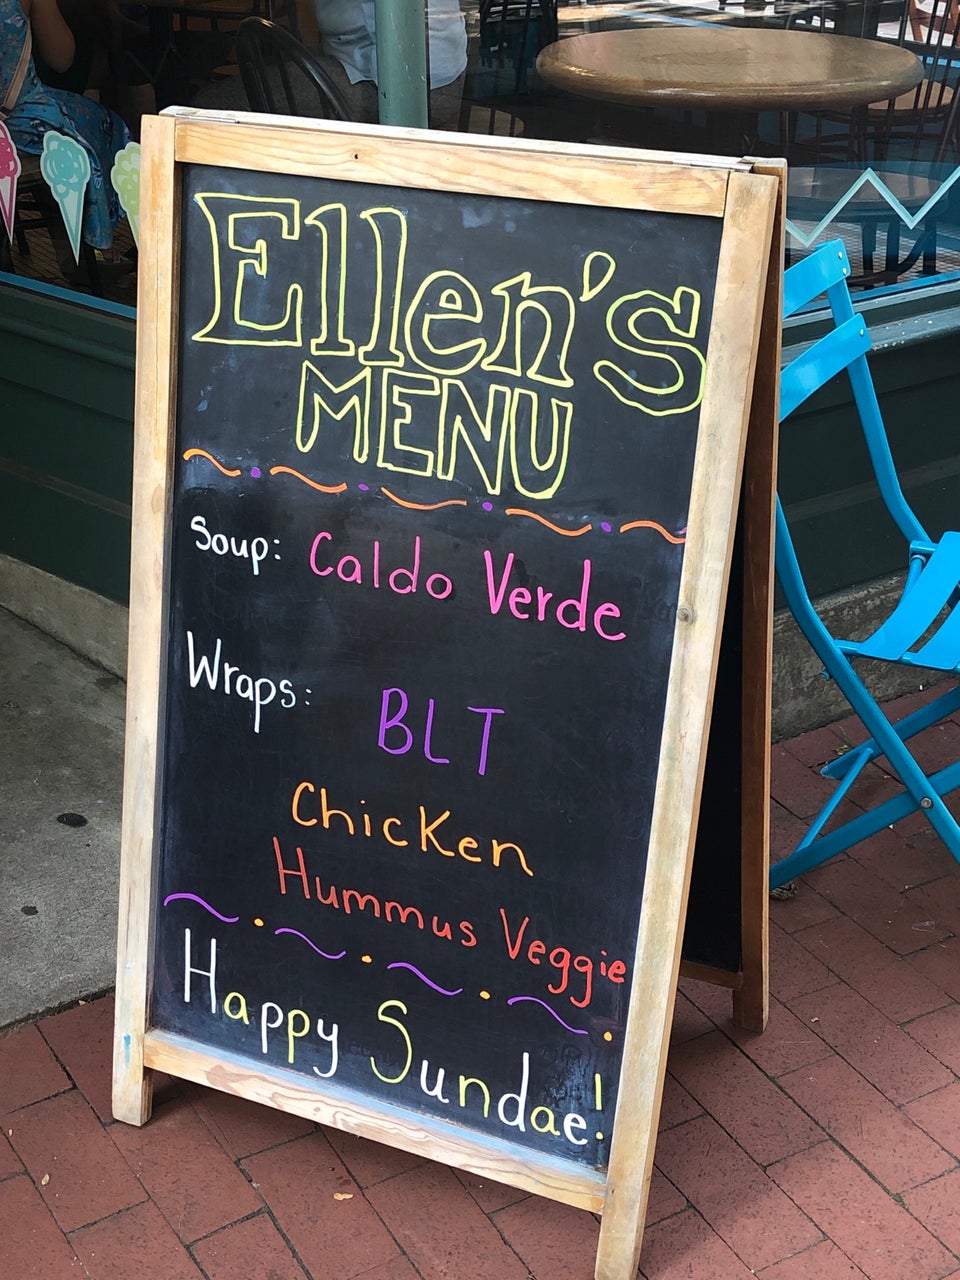 Ellen's
MENU
Soup: Caldo Verde
Wraps: BLT
Chicken
Hummus Veggie
Happy Sundae!